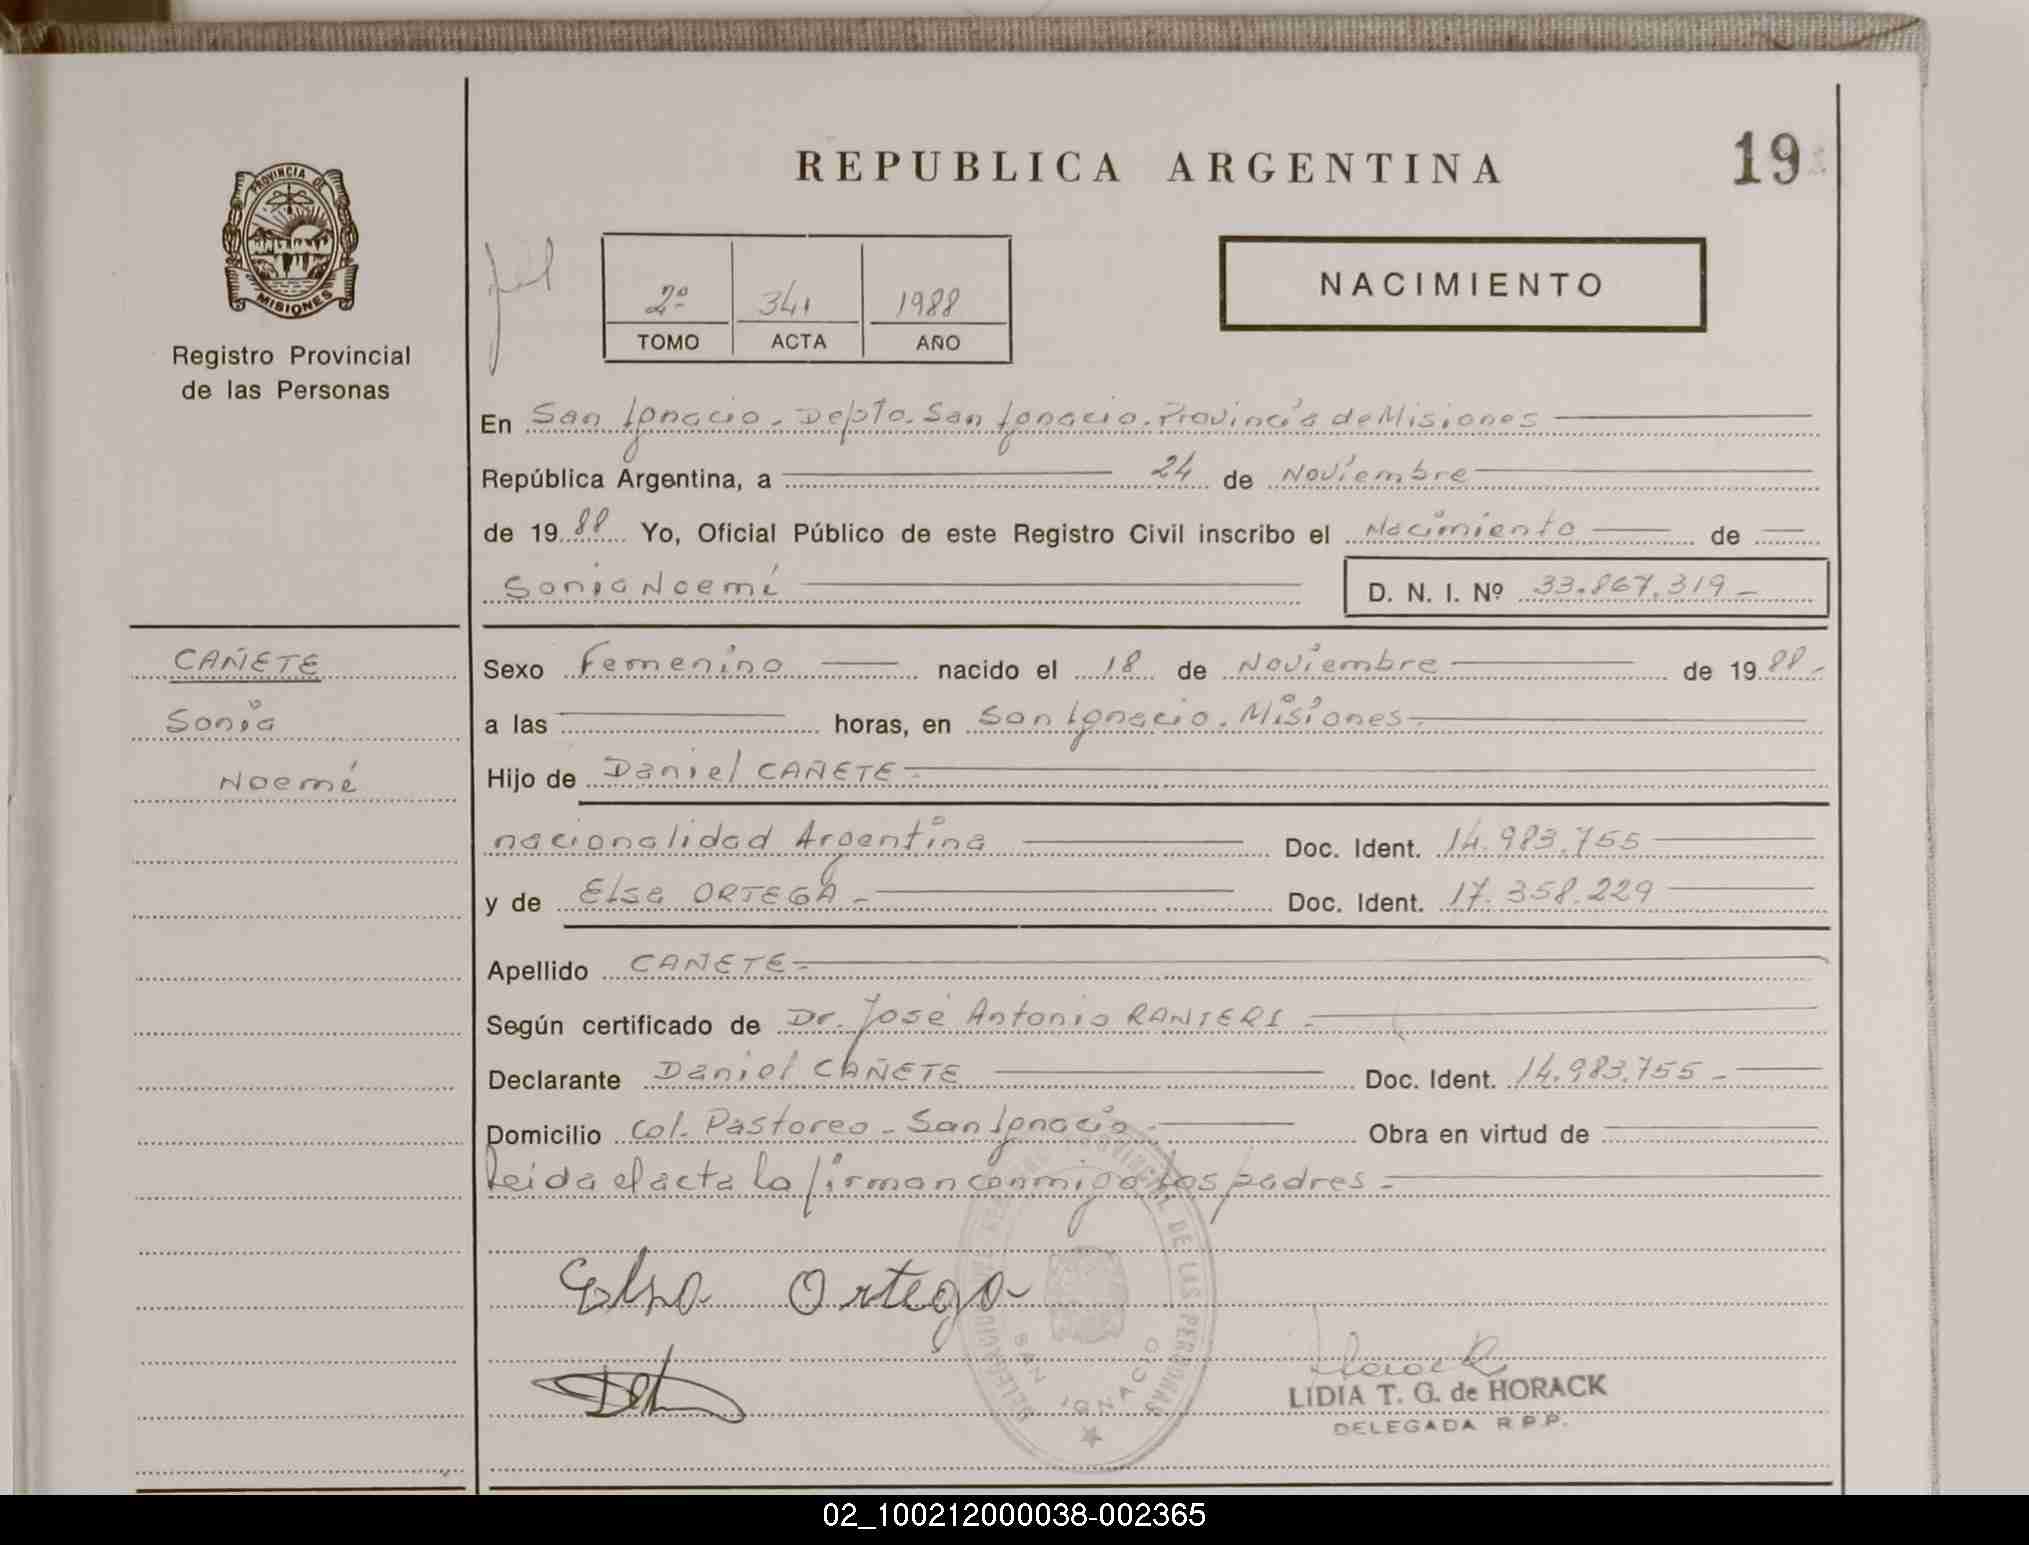 REPUBLICA ARGENTINA
19
PROVINCIA DE
MISIONES
Registro Provincial
de las Personas
2º 341 1988
TOMO ACTA AÑO
NACIMIENTO
En San Ignacio - Depto. San Ignacio. Provincia de Misiones
República Argentina, a 24 de Noviembre
de 19 88 Yo, Oficial Público de este Registro Civil inscribo el Nacimiento de
Sonia Noemí D. N. I. Nº 33.867.319 -
CAÑETE
Sonia
Noemí
Sexo Femenino nacido el 18 de Noviembre de 19 88 -
a las horas, en San Ignacio. Misiones -
Hijo de Daniel CAÑETE -
nacionalidad Argentina Doc. Ident. 14.983.755
y de Elsa ORTEGA - Doc. Ident. 17.358.229
Apellido CAÑETE -
Según certificado de Dr. José Antonio RANIERI -
Declarante Daniel CAÑETE Doc. Ident. 14.983.755 -
Domicilio Col. Pastoreo - San Ignacio - Obra en virtud de
Leida el acta la firman conmigo los padres -
Elsa Ortega
PROVINCIAL DE LAS PERSONAS
SAN IGNACIO
Horack
LIDIA T. G. de HORACK
DELEGADA R.P.P.
02_100212000038-002365